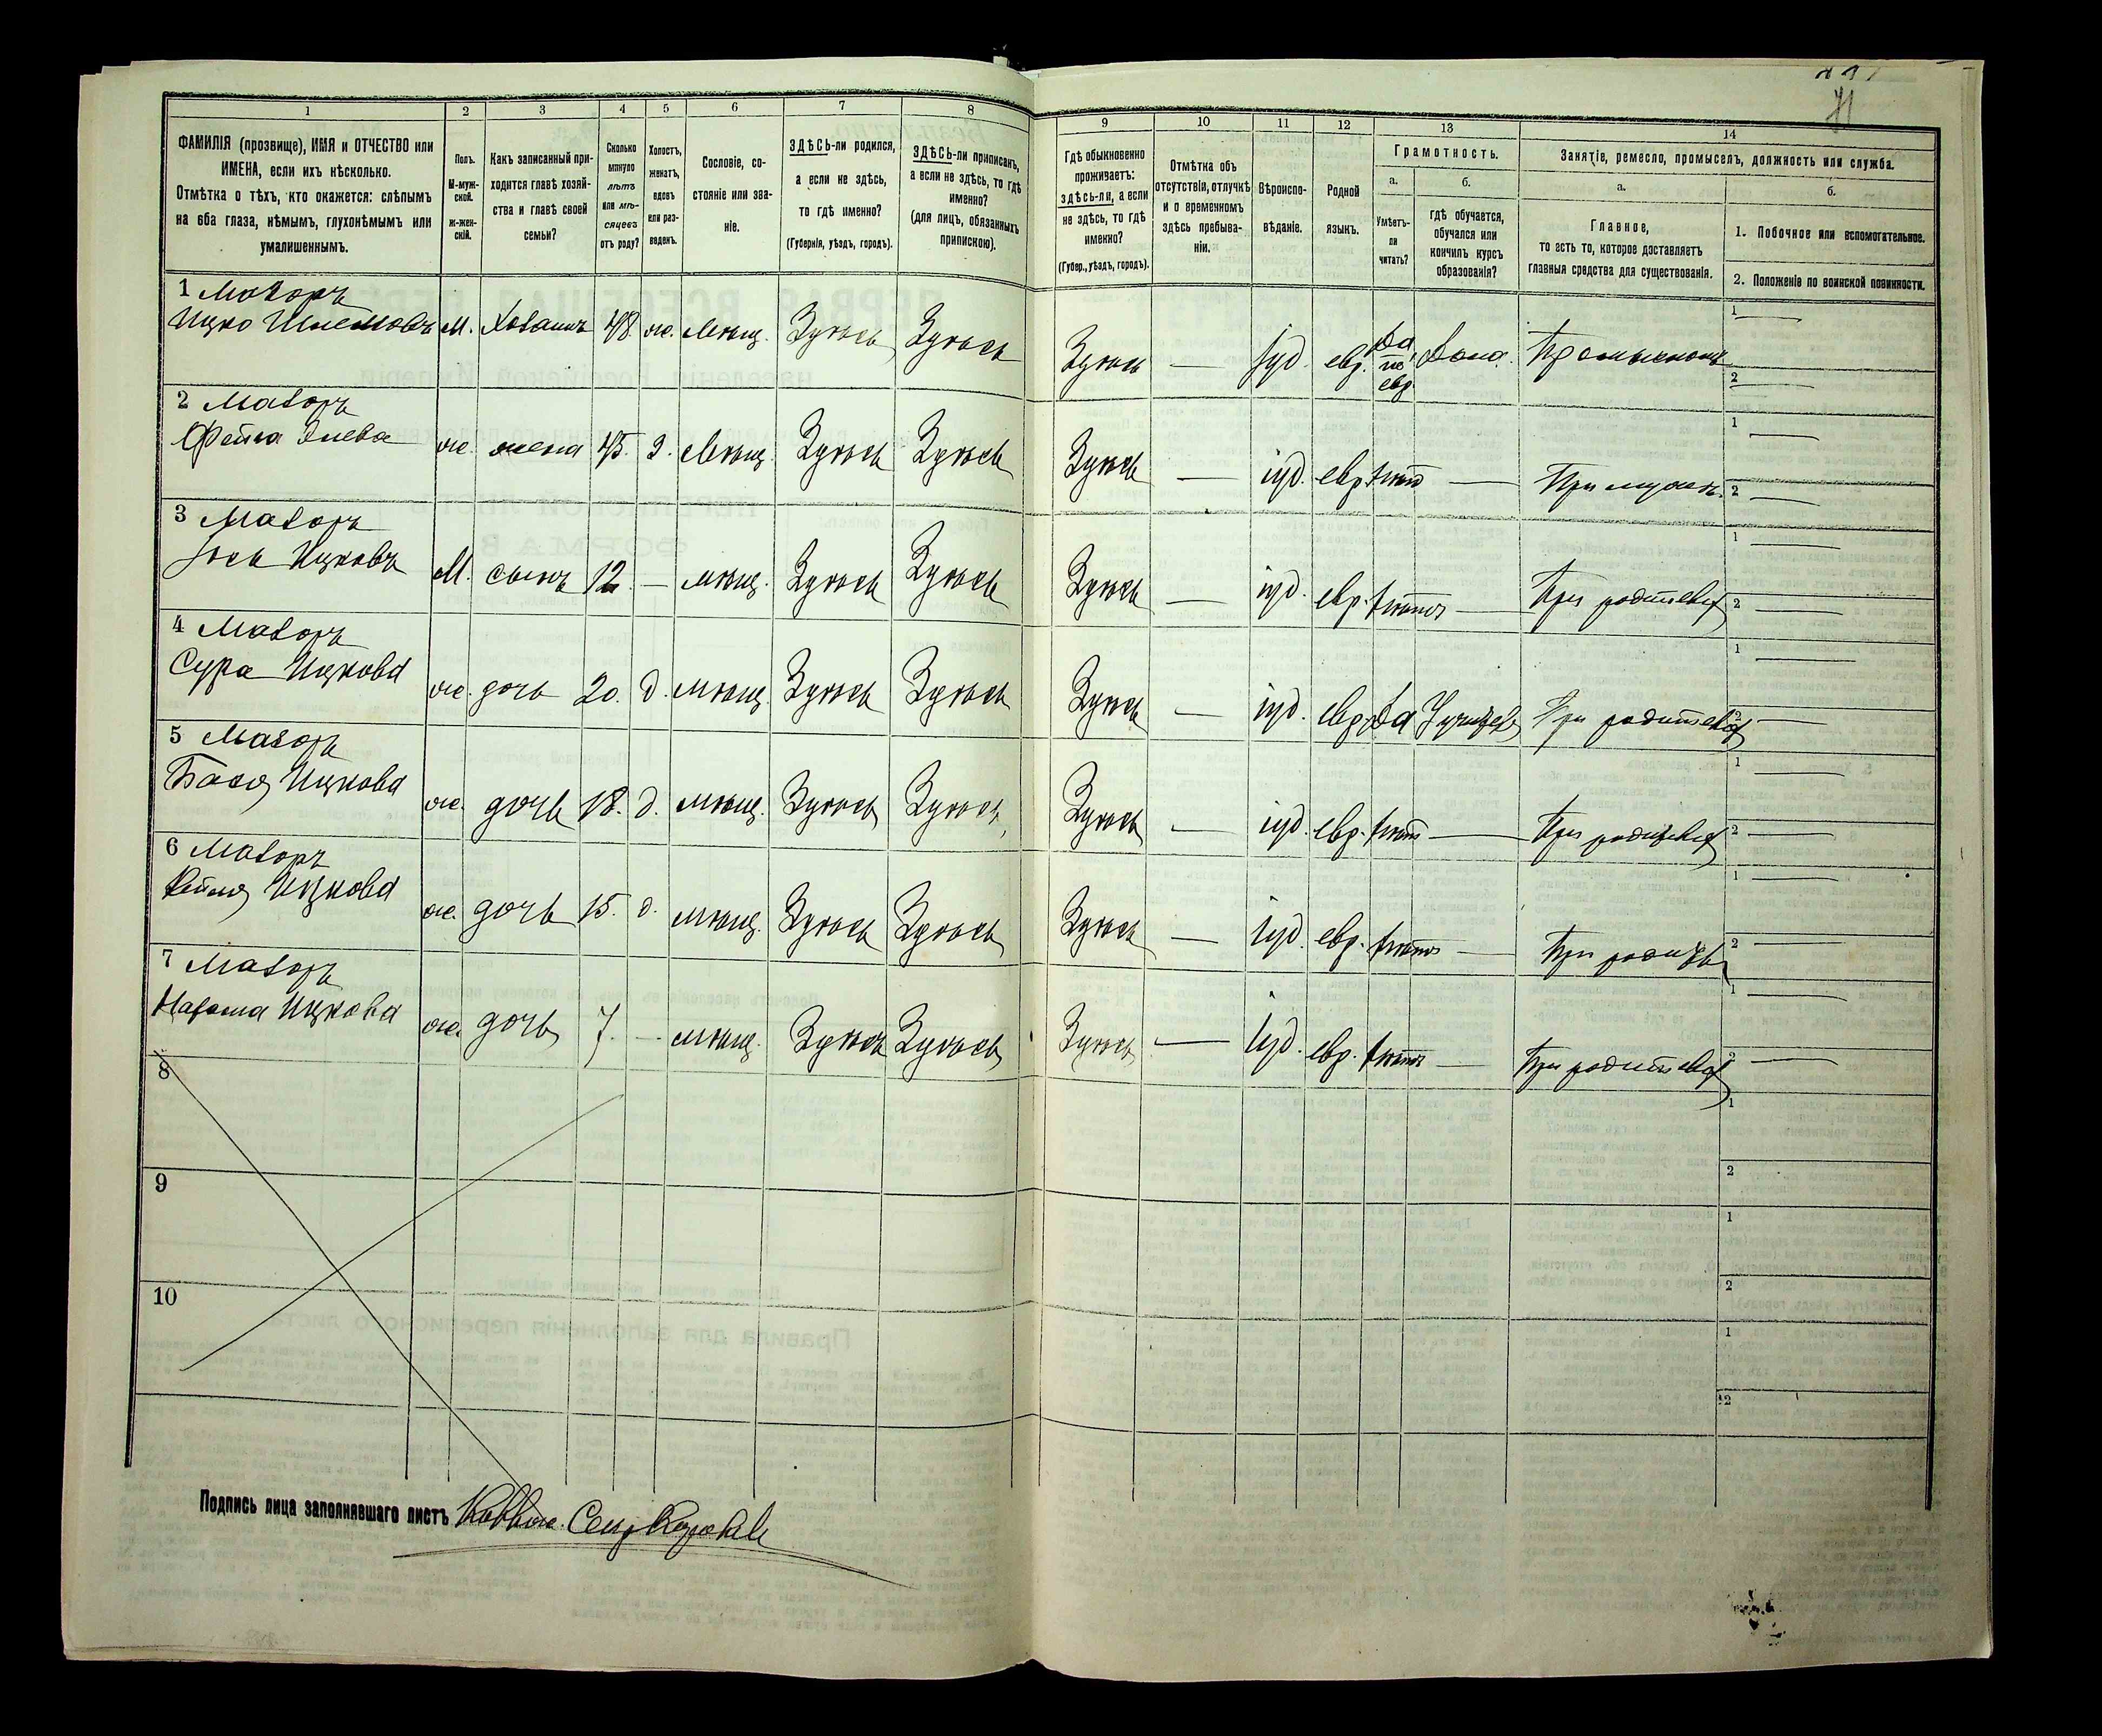 71
1 2 3 4 5 6 7 8
ФАМИЛІЯ (прозвище), ИМЯ и ОТЧЕСТВО или
ИМЕНА, если ихъ нѣсколько.
Отмѣтка о тѣхъ, кто окажется: слѣпымъ
на оба глаза, нѣмымъ, глухонѣмымъ или
умалишеннымъ.
Полъ.
М-муж-
ской.
Ж-жен-
скій.
Какъ записанный при-
ходится главѣ хозяй-
ства и главѣ своей
семьи?
Сколько
минуло
лѣтъ
или мѣ-
сяцевъ
отъ роду?
Холостъ,
женатъ,
вдовъ
или раз-
веденъ.
Сословіе, со-
стояніе или зва-
ніе.
ЗДѢСЬ-ли родился,
а если не здѣсь,
то гдѣ именно?
(Губернія, уѣздъ, городъ).
ЗДѢСЬ-ли приписанъ,
а если не здѣсь, то гдѣ
именно?
(для лицъ, обязанныхъ
припискою).
9 10 11 12 13 14
Гдѣ обыкновенно
проживаетъ:
здѣсь-ли, а если
не здѣсь, то гдѣ
именно?
(Губер., уѣздъ, городъ).
Отмѣтка объ
отсутствіи, отлучкѣ
и о временномъ
здѣсь пребыва-
ніи.
Вѣроиспо-
вѣданіе.
Родной
языкъ.
Грамотность.
а.
Умѣетъ-
ли
читать?
б.
гдѣ обучается,
обучался или
кончилъ курсъ
образованія?
Занятіе, ремесло, промыселъ, должность или служба.
а.
Главное,
то есть то, которое доставляетъ
главныя средства для существованія.
б.
1. Побочное или вспомогательное.
2. Положеніе по воинской повинности.
1 Мазоръ
Ицко Шлемовъ М. Хозяинъ 48. ж. Мѣщ. Здѣсь Здѣсь Здѣсь — Іуд. евр. Да по евр. Дома. 1 — 2 —
2 Мазоръ
Фейга ж. жена 45. з. Мѣщ. Здѣсь Здѣсь Здѣсь — іуд. евр. нѣт — При мужѣ. 1 — 2 —
3 Мазоръ
Іось Ицковъ М. сынъ 12. — мѣщ. Здѣсь Здѣсь Здѣсь — іуд. евр. нѣтъ — При родителях 1 — 2 —
4 Мазоръ
Сура Ицкова ж. дочь 20. д. мѣщ. Здѣсь Здѣсь Здѣсь — іуд. евр. Да При родителях 1 — 2 —
5 Мазоръ
Бася Ицкова ж. дочь 18. д. мѣщ. Здѣсь Здѣсь Здѣсь — іуд. евр. нѣт — При родителях 1 — 2 —
6 Мазоръ
Ицкова ж. дочь 15. д. мѣщ. Здѣсь Здѣсь Здѣсь — Іуд. евр. нѣтъ — При 1 — 2 —
7 Мазоръ
Ицкова ж. дочь 7. — мѣщ. Здѣсь Здѣсь Здѣсь — Іуд. евр. нѣтъ — При родителях 1 — 2 —
8 1 2
9 1 2
10 1 2
Подпись лица заполнявшаго листъ